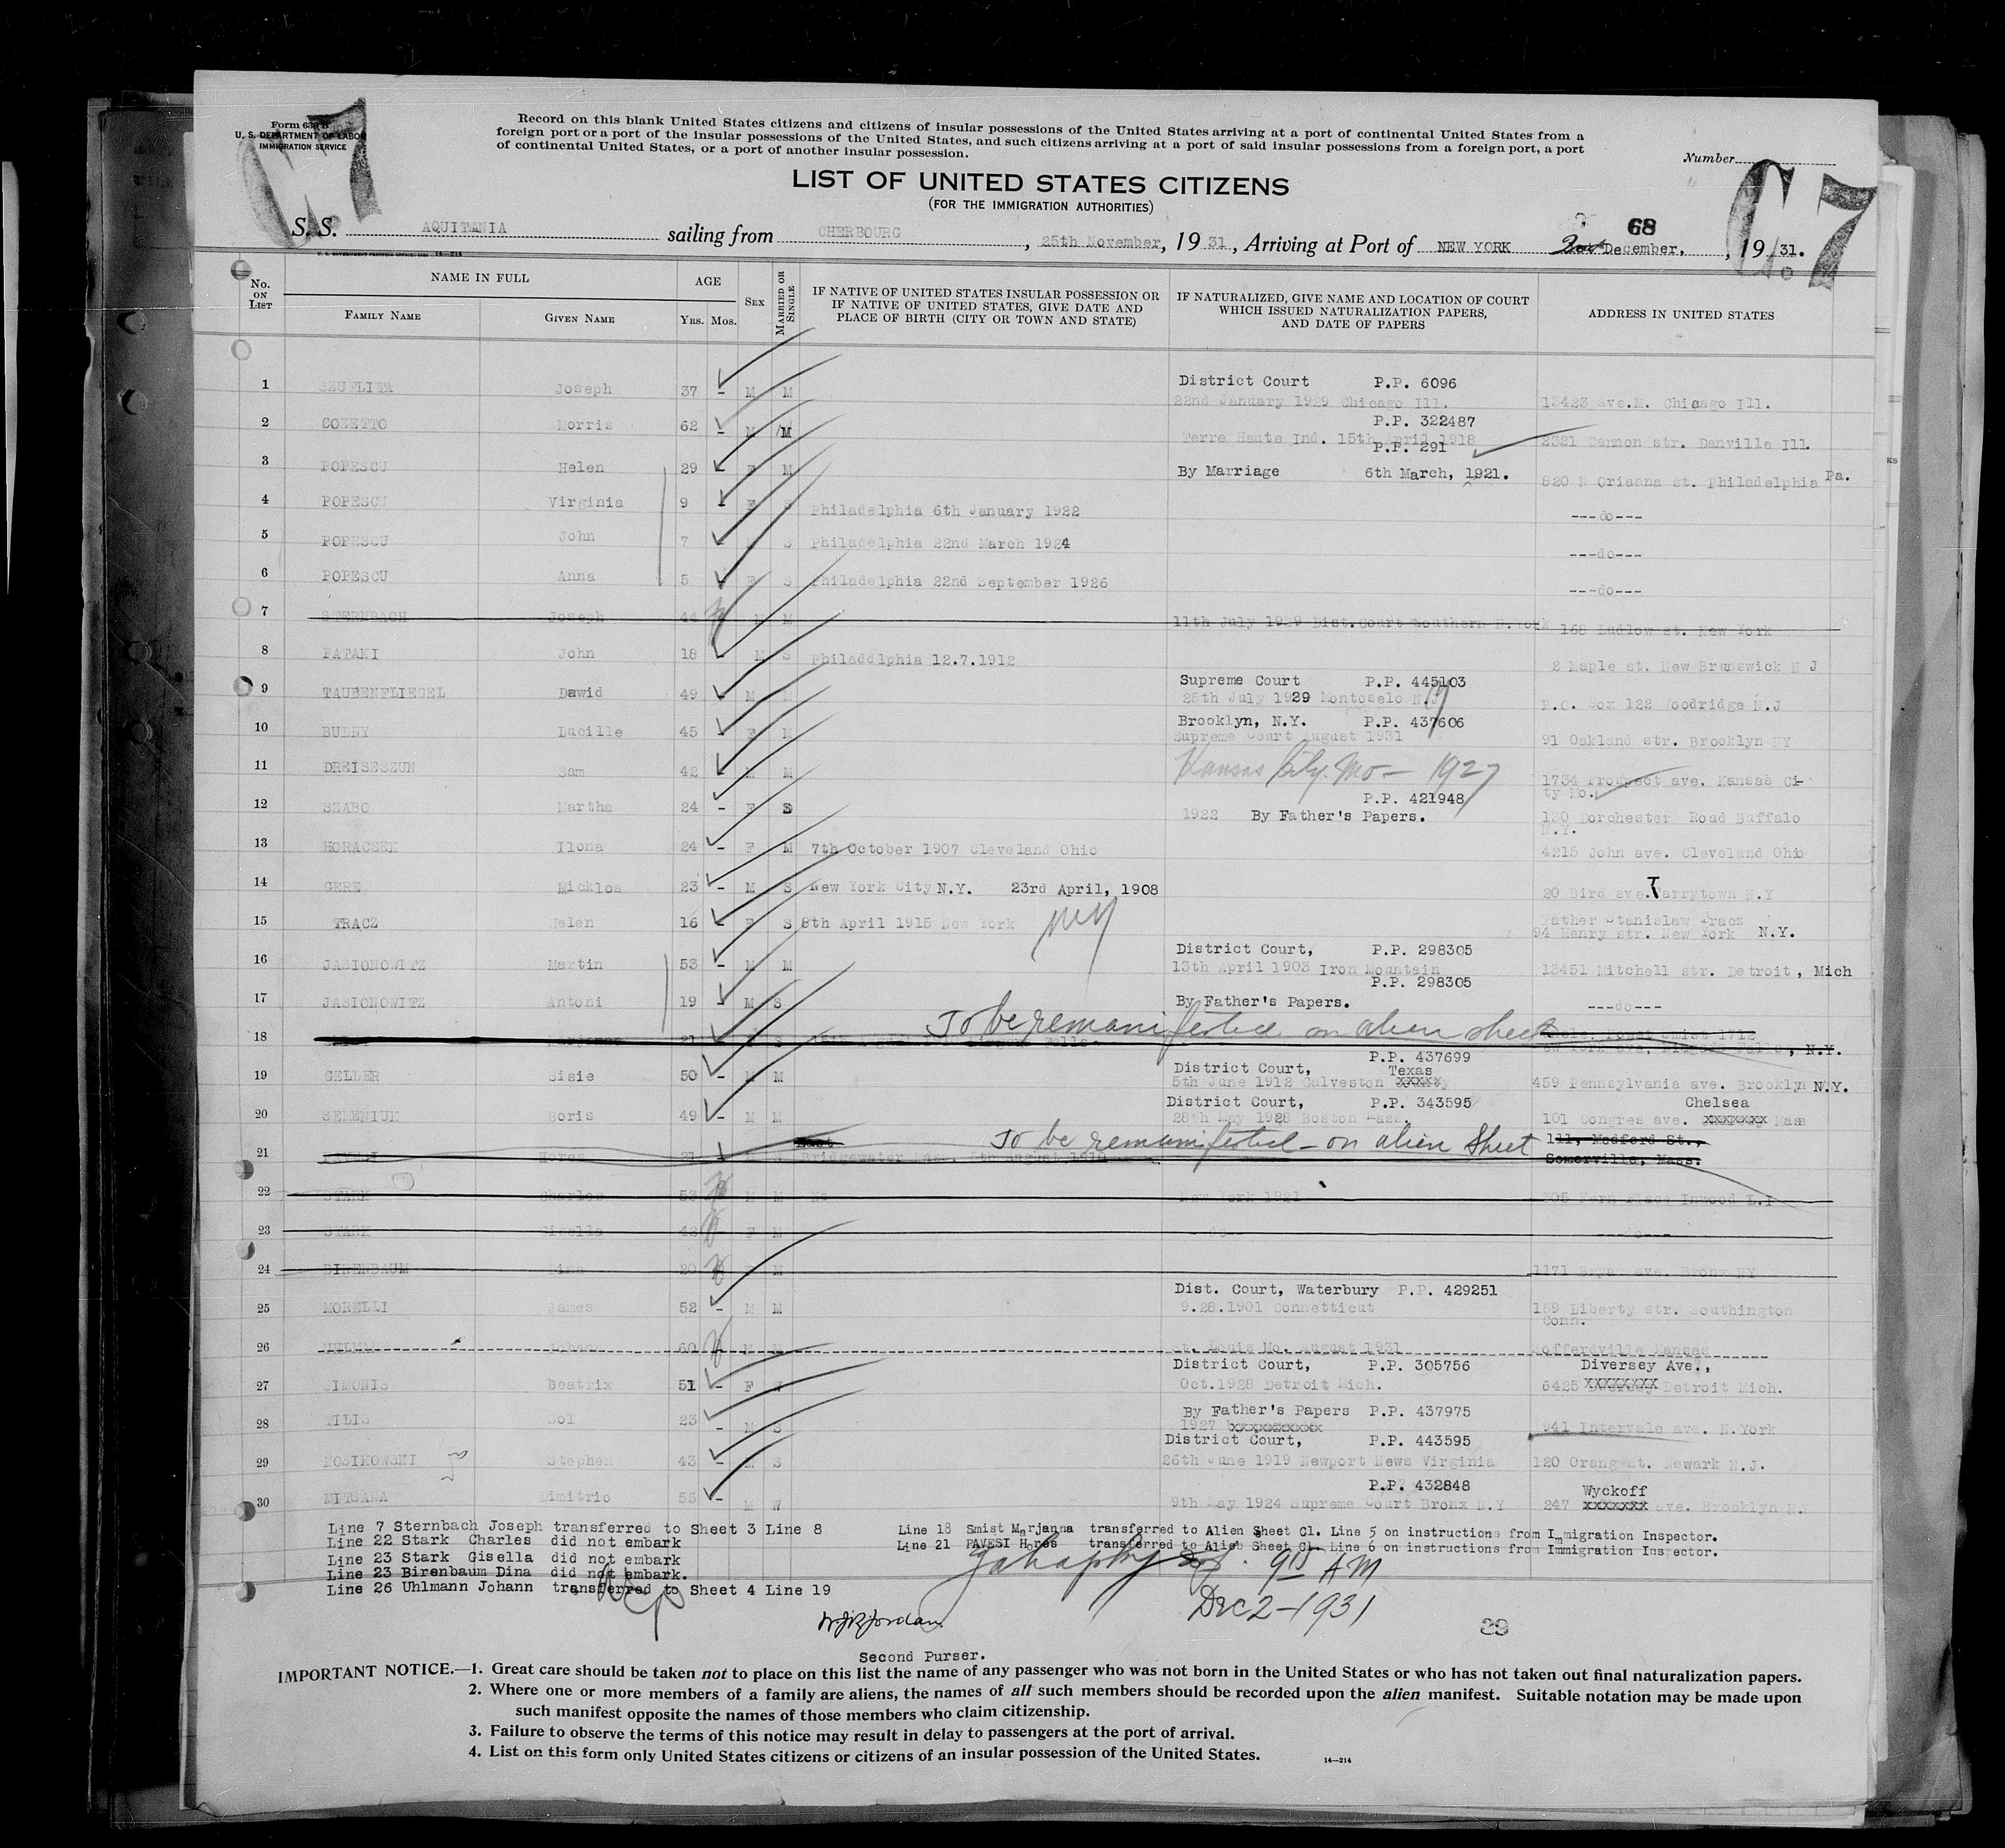 Form 630 B
U. S. DEPARTMENT OF LABOR
IMMIGRATION SERVICE
C.7
Record on this blank United States citizens and citizens of insular possessions of the United States arriving at a port of continental United States from a
foreign port or a port of the insular possessions of the United States, and such citizens arriving at a port of said insular possessions from a foreign port, a port
of continental United States, or a port of another insular possession.
Number
C.7
LIST OF UNITED STATES CITIZENS
(FOR THE IMMIGRATION AUTHORITIES)
68
S. S. AQUITANIA sailing from CHERBOURG, 25th November, 19 31, Arriving at Port of NEW YORK 2nd December, , 19 31.
No. ON LIST
NAME IN FULL
FAMILY NAME
GIVEN NAME
AGE
YRS. MOS.
SEX
MARRIED OR SINGLE
IF NATIVE OF UNITED STATES INSULAR POSSESSION OR
IF NATIVE OF UNITED STATES, GIVE DATE AND
PLACE OF BIRTH (CITY OR TOWN AND STATE)
IF NATURALIZED, GIVE NAME AND LOCATION OF COURT
WHICH ISSUED NATURALIZATION PAPERS,
AND DATE OF PAPERS
ADDRESS IN UNITED STATES
1 SZUFLITA Joseph 37 - M M District Court P.P. 6096
22nd January 1929 Chicago Ill. 13423 Ave.M. Chicago Ill.
2 COZETTO Morris 62 - M M P.P. 322487
Terre Haute Ind. 15th April 1918 2321 Cannon str. Danville Ill.
P.P. 291
3 POPESCU Helen 29 - F M By Marriage 6th March, 1921. 820 N Oriaana st. Philadelphia Pa.
4 POPESCU Virginia 9 - F S Philadelphia 6th January 1922 ---do---
5 POPESCU John 7 - S Philadelphia 22nd March 1924 ---do---
6 POPESCU Anna 5 - F S Philadelphia 22nd September 1926 ---do---
7 STERNBACH Joseph 44 M M 11th July 1929 Dist.Court Southern N.York 168 Ludlow st. New York
8 PATAKI John 18 - M S Philadelphia 12.7.1912 2 Maple st. New Brunswick N J
9 TAUBENFLIEGEL Dawid 49 - M M Supreme Court P.P. 445103
25th July 1929 Montoselo N.J P.O. Box 122 Woodridge N.J
10 BUDNY Lucille 45 - F M Brooklyn, N.Y. P.P. 437606
Supreme Court August 1931 91 Oakland str. Brooklyn NY
11 DREISESZUN Sam 42 - M M Kansas City. Mo - 1927 1734 Prospect ave. Kansas Ci-
ty Mo.
12 SZABO Martha 24 - F S P.P. 421948
1922 By Father's Papers. 130 Dorchester Road Buffalo
N.Y.
13 HORACSEK Ilona 24 - F M 7th October 1907 Cleveland Ohio 4215 John ave. Cleveland Ohio
14 GERE Micklos 23 - M S New York City N.Y. 23rd April, 1908 20 Bird ave. Tarrytown N.Y
15 TRACZ Helen 16 - F S 8th April 1915 New York NY Father Stanislaw Tracz
94 Henry str. New York N.Y.
16 JASIONOWITZ Martin 53 - M M District Court, P.P. 298305
13th April 1903 Iron Mountain 13451 Mitchell str. Detroit, Mich
P.P. 298305
17 JASIONOWITZ Antoni 19 - M S By Father's Papers. ---do---
To be remanifested on alien sheet
18 Marjanna 21 S 1712
, N.Y.
P.P. 437699
19 GELLER Sisie 50 - M District Court, Texas
5th June 1912 Galveston xxxxx 459 Pennsylvania ave. Brooklyn N.Y.
20 SEMENIUK Boris 49 - M M District Court, P.P. 343595
28th May 1928 Boston Mass Chelsea
101 Congres ave. xxxxxxxx Mass
To be remanifested - on alien Sheet
21 PAVESI Hores 21 - Bridgewater Mass. 111, Medford St.,
Somerville, Mass.
22 STARK Charles 53 M M New York 1921 205 Fern Place Inwood L.I
23 STARK Gisella 42 F M
24 BIRENBAUM Dina 20 M 1171 Bryan ave. Bronx NY
25 MORELLI James 52 - M M Dist. Court, Waterbury P.P. 429251
9.28.1901 Connecticut 159 Liberty str. Southington
Conn.
26 UHLMANN Johann 60 M St. Louis Mo. August 1931 Coffersville Kansas
27 SIMONIS Beatrix 51 - F W District Court, P.P. 305756
Oct.1928 Detroit Mich. Diversey Ave.,
5425 xxxxxxxx Detroit Mich.
28 MILIS Sol 23 - M S By Father's Papers P.P. 437975
1927 xxxxxxxxxxx 941 Intervale ave. N.York
29 KOSIKOWSKI Stephen 43 - M S District Court, P.P. 443595
26th June 1919 Newport News Virginia 120 Orange st. Newark N.J.
P.P. 432848
30 MITSANA Dimitrio 55 - M W 9th May 1924 Supreme Court Bronx N.Y Wyckoff
247 xxxxxxx ave. Brooklyn N.Y
Line 7 Sternbach Joseph transferred to Sheet 3 Line 8
Line 22 Stark Charles did not embark
Line 23 Stark Gisella did not embark
Line 23 Birenbaum Dina did not embark.
Line 26 Uhlmann Johann transferred to Sheet 4 Line 19
Line 18 Smist Marjanna transferred to Alien Sheet Cl. Line 5 on instructions from Immigration Inspector.
Line 21 PAVESI Hores transferred to Alieb Sheet Cl. Line 6 on instructions from Immigration Inspector.
9 15 AM
Dec 2-1931
29
Second Purser.
IMPORTANT NOTICE.—1. Great care should be taken not to place on this list the name of any passenger who was not born in the United States or who has not taken out final naturalization papers.
2. Where one or more members of a family are aliens, the names of all such members should be recorded upon the alien manifest. Suitable notation may be made upon
such manifest opposite the names of those members who claim citizenship.
3. Failure to observe the terms of this notice may result in delay to passengers at the port of arrival.
4. List on this form only United States citizens or citizens of an insular possession of the United States.
14—214